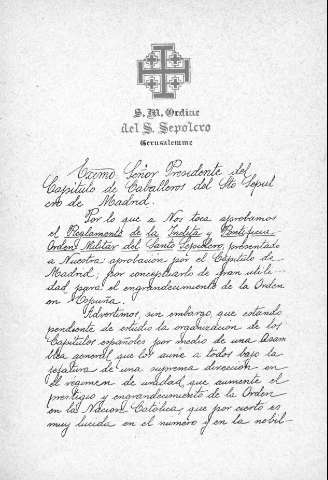 S. M. Ordine
del S. Sepolcro
Gerusalemme
Exĉmo Señor Presidente del
Capítulo de Caballeros del Sto Sepul
cro de Madrid.
Por lo que a Nos toca aprobamos
el Reglamento de la Inclita y Pontificia
Orden Militar del Santo Sepulcro, presentado
a Nuestra aprobación por el Capítulo de
Madrid; por conceptuarlo de gran utili-
dad para el engrandecimiento de la Orden
en España.
Advertimos, sin embargo, que estando
pendiente de estudio la organización de los
Capítulos españoles por medio de una Asam
blea general que los aune a todos bajo la
jefatura de una suprema dirección en
el regimen de unidad, que aumente el
prestigio y engrandecimiento de la Orden
en la Nación Católica, que por cierto es
muy lucida en el número y en la nobil-